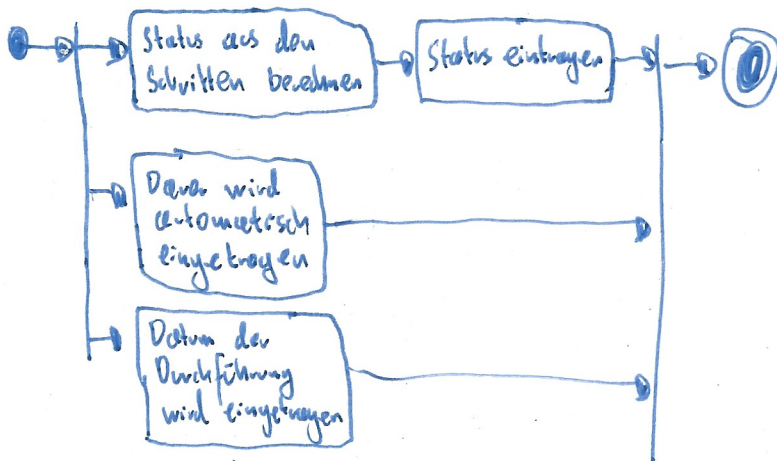 Status aus den
Schritten berechnen
Status eintragen
Dauer wird
automatisch
eingetragen
Datum der
Durchführung
wird eingetragen